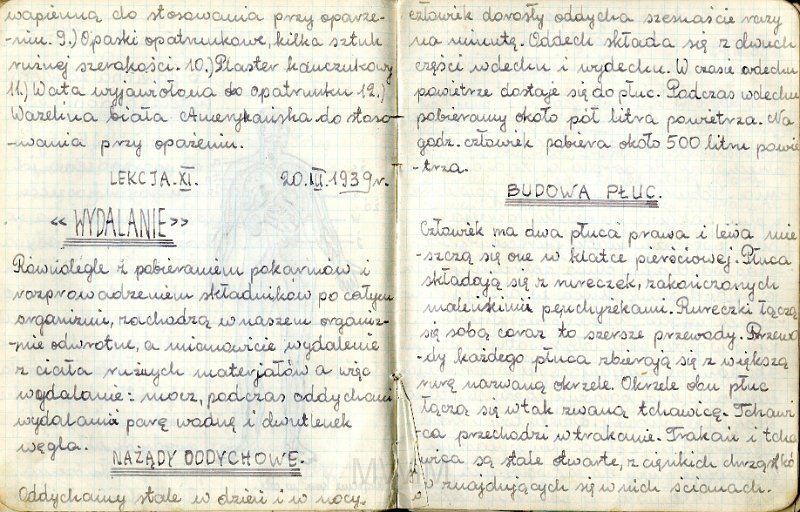 wapienną do stosowania przy oparze-
-niu. 9.) Opaski opatrunkowe, kilka sztuk
różnej szerokości. 10.) Plaster kauczukowy
11.) Wata wyjawiołowa do opatrunku 12.)
Wazelina biała Amerykańska do stoso-
-wania przy opażeniu.
LEKCJA.XI. 20.III.1939r.
«WYDALANIE»
Równolegle z pobieraniem pokarmów i
rozprowadzeniem składników po całym
organizmi, zachodzą w naszem organiz-
-mie odwrotne, a mianowicie wydalenie
z ciała różnych materjałów a więc
wydalanie: mocz, podczas oddychani
wydalania parę wodną i dwutlenek
węgla.
NAŻĄDY ODDYCHOWE.
Oddychamy stale w dzień i w nocy.
człowiek dorosły oddycha szesnaście razy
na minutę. Oddech składa się z dwuch
części wdechu i wydechu. W czasie wdechu
powietrze dostaje się do płuc. Podczas wdechu
pobieramy około pół litra powietrza. Na
godz. człowiek pobiera około 500 litru powie
-trza.
BUDOWA PŁUC.
Człowiek ma dwa płuca prawa i lewa mie
-szczą się one w klatce pierściowej. Płuca
składają się z rureczek, zakończanych
maleńkimii pęnchyżekami. Rureczki łączą
się sobą coraz to szersze przewody. Przewo
-dy każdego płuca zbierają się z większą
rurę nazwaną okrzele. Okrzele obu płuc
łączą się w tak zwaną tchawicę. Tchawi
-ca przechodzi w trakanie. Trakan i tcha
-wica są stale otwarte, z cięnkich chrząstkó
w znajdujących się w nich ścianach.